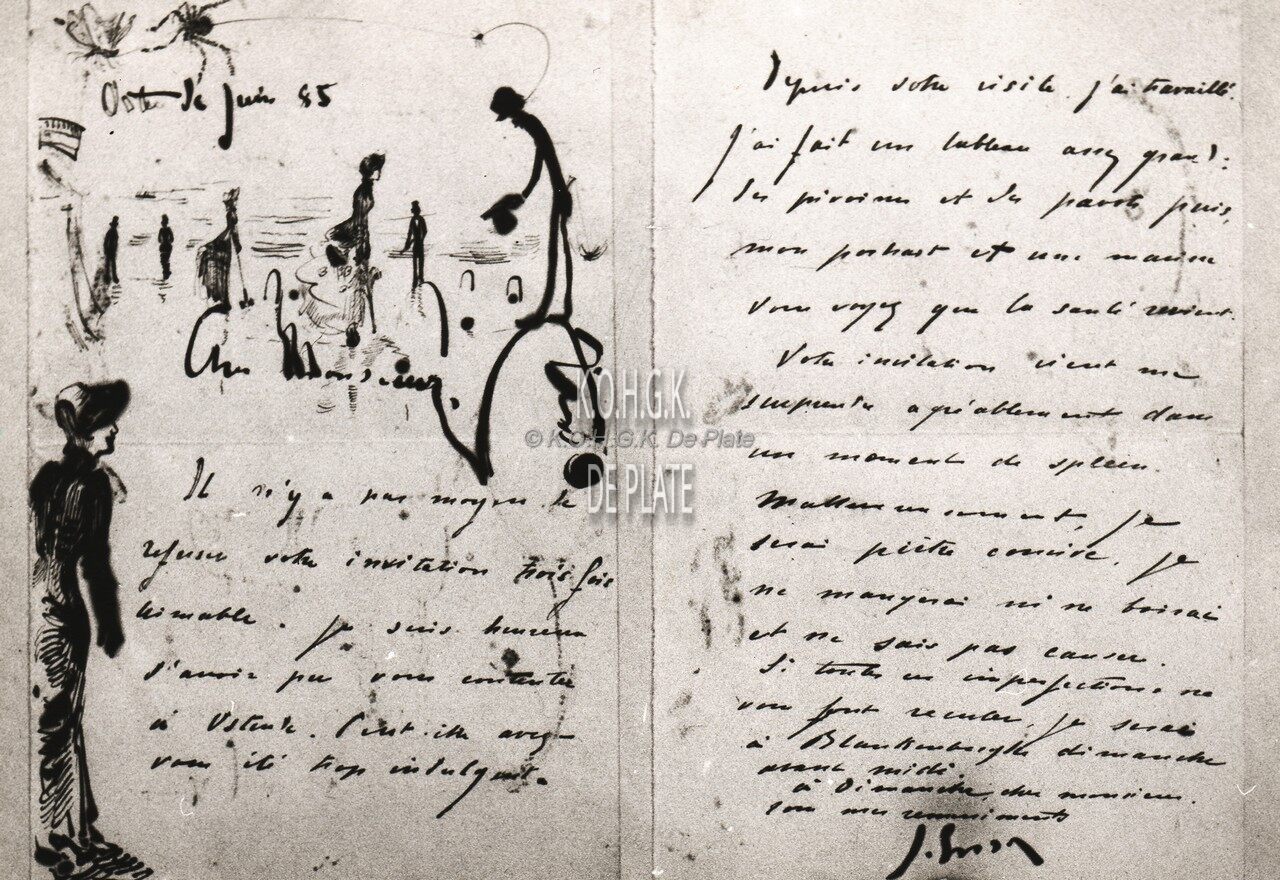 Juin 85
Cher Monsieur
Il n'y a pas moyen de
refuser votre invitation trois fois
aimable. Je suis heureux
d'avoir pu vous contenter
à Ostende. Peut-être avez-
vous été trop indulgent.
Depuis votre visite j'ai travaillé.
J'ai fait un tableau assez grand:
des pivoines et des pavots puis,
mon portrait et une marine
vous voyez que la santé revient.
Votre invitation vient me
surprendre agréablement dans
un moment de spleen.
Malheureusement, je
serai piètre convive. Je
ne mangerai ni ne boirai
et ne sais pas causer.
Si toutes ces imperfections ne
vous font reculer, je serai
à Blankenberghe dimanche
avant midi.
à Dimanche, cher monsieur.
mes remerciments
J. Ensor
K.O.H.G.K.
© K.O.H.G.K. De Plate
DE PLATE